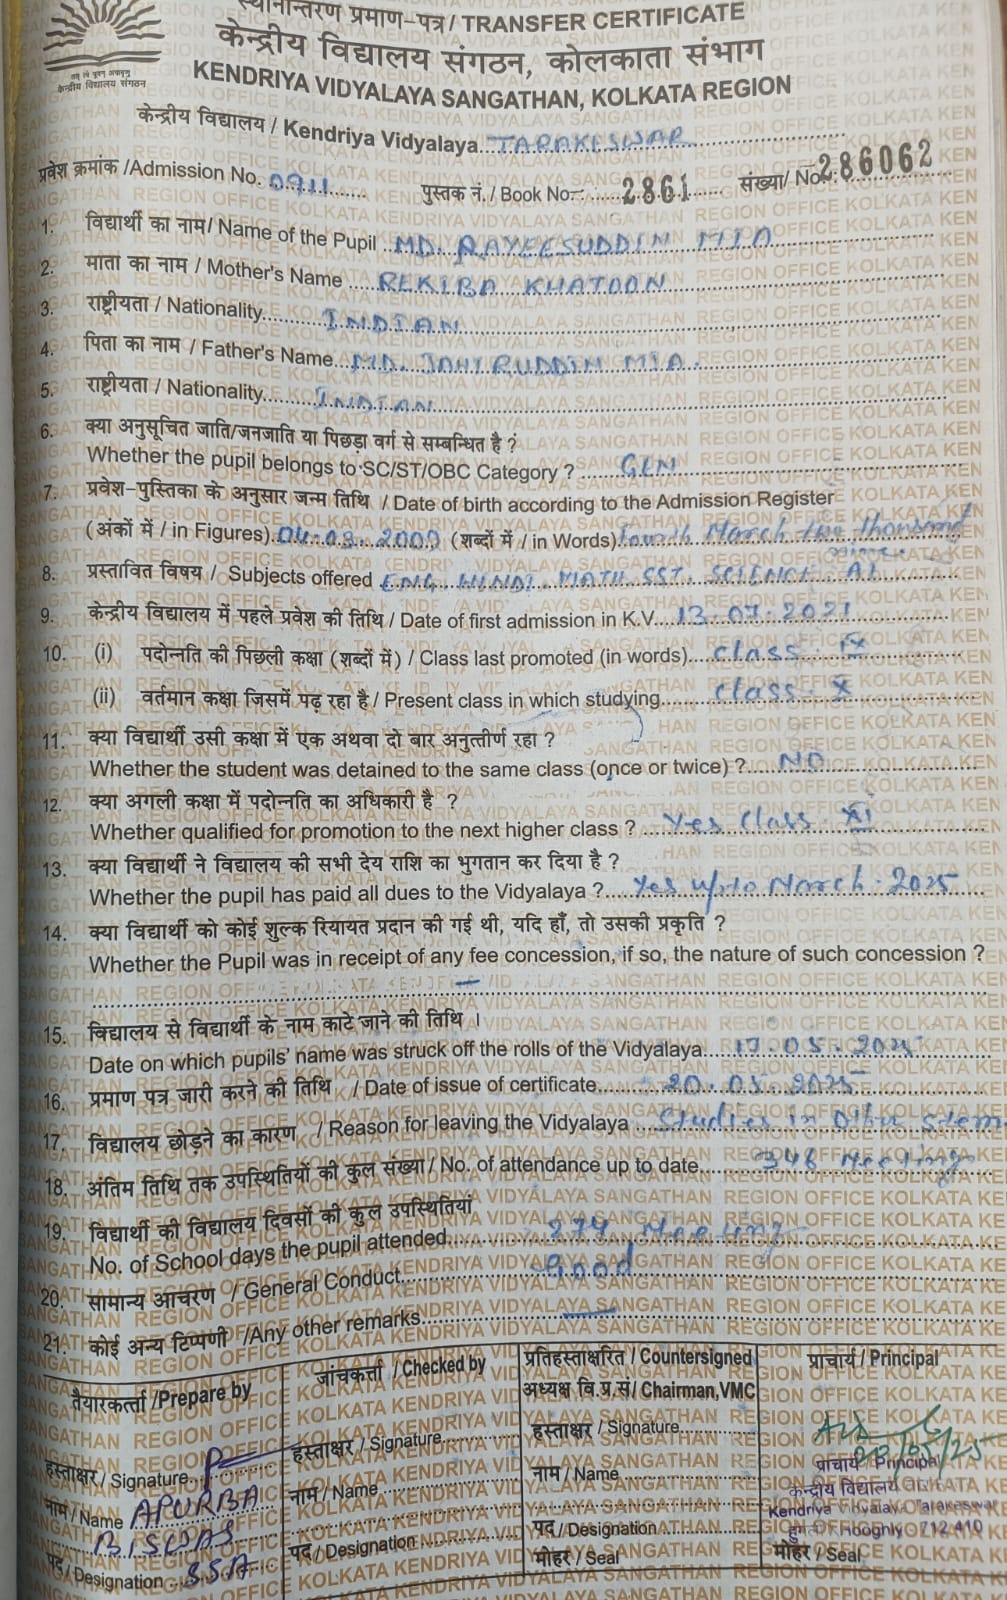 स्थानान्तरण प्रमाण-पत्र / TRANSFER CERTIFICATE
केन्द्रीय विद्यालय संगठन, कोलकाता संभाग
KENDRIYA VIDYALAYA SANGATHAN, KOLKATA REGION
केन्द्रीय विद्यालय संगठन
केन्द्रीय विद्यालय / Kendriya Vidyalaya TARAKESWAR
प्रवेश क्रमांक /Admission No. 0911 पुस्तक नं. / Book No 2861 संख्या/ No. 286062
1. विद्यार्थी का नाम/ Name of the Pupil MD. RAYEESUDDIN MIA
2. माता का नाम / Mother's Name REKIBA KHATOON
3. राष्ट्रीयता / Nationality INDIAN
4. पिता का नाम / Father's Name MD. JAHIRUDDIN MIA.
5. राष्ट्रीयता / Nationality INDIAN
6. क्या अनुसूचित जाति/जनजाति या पिछड़ा वर्ग से सम्बन्धित है ?
Whether the pupil belongs to SC/ST/OBC Category ? GEN
7. प्रवेश-पुस्तिका के अनुसार जन्म तिथि / Date of birth according to the Admission Register
(अंकों में / in Figures) 04.03.2009 (शब्दों में / in Words) fourth March two thousand
nine
8. प्रस्तावित विषय / Subjects offered ENG HINDI MATH SST SCIENCE AI
9. केन्द्रीय विद्यालय में पहले प्रवेश की तिथि / Date of first admission in K.V. 13.07.2021
10. (i) पदोन्नति की पिछली कक्षा (शब्दों में) / Class last promoted (in words) class IX
(ii) वर्तमान कक्षा जिसमें पढ़ रहा है / Present class in which studying class X
11. क्या विद्यार्थी उसी कक्षा में एक अथवा दो बार अनुत्तीर्ण रहा ?
Whether the student was detained to the same class (once or twice) ? NO
12. क्या अगली कक्षा में पदोन्नति का अधिकारी है ?
Whether qualified for promotion to the next higher class ? Yes class XI
13. क्या विद्यार्थी ने विद्यालय की सभी देय राशि का भुगतान कर दिया है ?
Whether the pupil has paid all dues to the Vidyalaya ? Yes upto March.2025
14. क्या विद्यार्थी को कोई शुल्क रियायत प्रदान की गई थी, यदि हाँ, तो उसकी प्रकृति ?
Whether the Pupil was in receipt of any fee concession, if so, the nature of such concession ?
—
15. विद्यालय से विद्यार्थी के नाम काटे जाने की तिथि ।
Date on which pupils' name was struck off the rolls of the Vidyalaya 17.05.2025
16. प्रमाण पत्र जारी करने की तिथि / Date of issue of certificate 20.05.2025
17. विद्यालय छोड़ने का कारण / Reason for leaving the Vidyalaya Studies in Other
18. अंतिम तिथि तक उपस्थितियों की कुल संख्या / No. of attendance up to date 346 Meetings
19. विद्यार्थी की विद्यालय दिवसों की कुल उपस्थितियां
No. of School days the pupil attended 274 Meeting
20. सामान्य आचरण / General Conduct Good
21. कोई अन्य टिप्पणी /Any other remarks —
तैयारकर्त्ता /Prepare by
हस्ताक्षर / Signature
नाम / Name APURBA
BISWAS
पद / Designation SSA
जांचकर्त्ता / Checked by
हस्ताक्षर / Signature
नाम / Name
पद / Designation
प्रतिहस्ताक्षरित / Countersigned
अध्यक्ष वि.प्र.सं/ Chairman,VMC
हस्ताक्षर / Signature
नाम / Name
पद / Designation
मोहर / Seal
प्राचार्य / Principal
20/05/25
प्राचार्य / Principal
केन्द्रीय विद्यालय
Kendriya Vidyalaya Tarakeswar
Hooghly 712410
मोहर / Seal